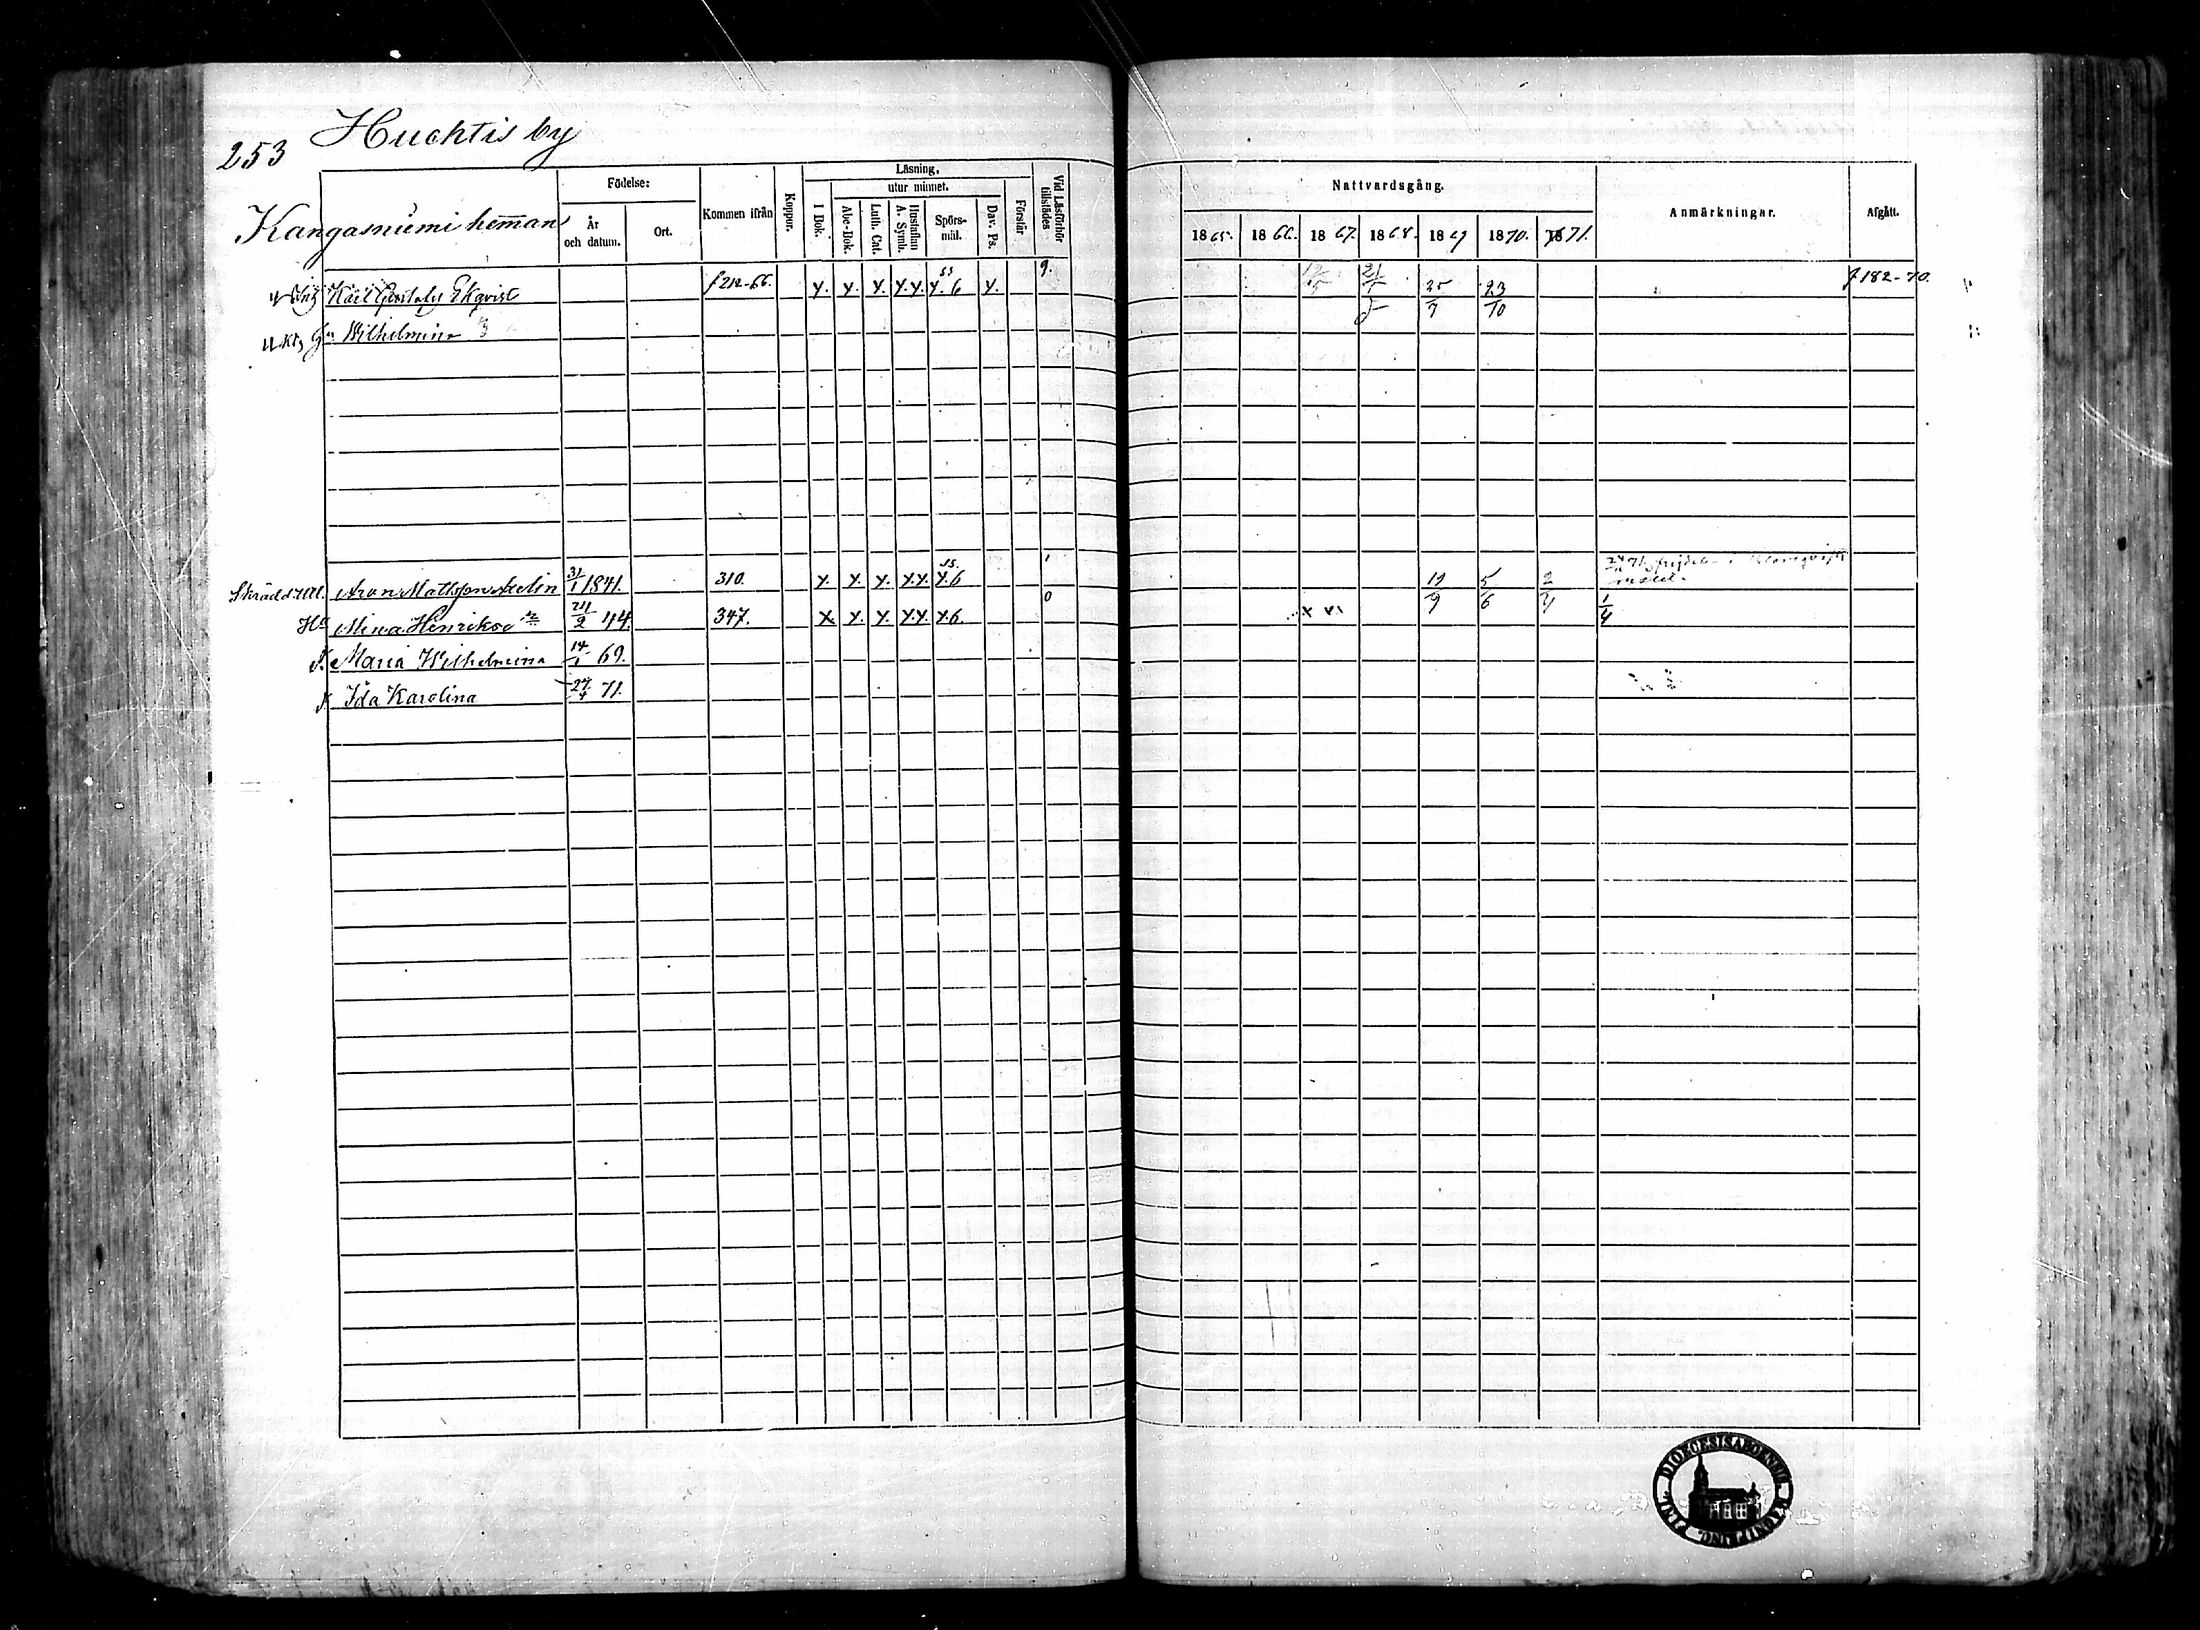 253 Huchtis by
Kangasniemi hemman
Födelse: Kommen ifrån Koppor. Läsning, Vid Läsförhör tillstädes
År och datum. Ort. I Bok. utur minnet. Förstår
Abc-Bok. Luth. Cat. Hustaflan A. Symb. Spörsmål. Dav. Ps.
Nattvardsgång. Anmärkningar. Afgått.
1865. 1866. 1867. 1868. 1869 1870. 1871.
Karl Gustaf Ekqvist f 212-66. x. x. x. x. x. x. 6 x. 9. 25/7 23/10 f 182-70.
Wilhelmina
Aron Mattsson 31/1 1841. 310. x. x. x. x. x. x. 6 1 19/9 5/6
Ha Mina Henriksdr 24/2 44 347. x x. x. x. x. x. 6. 0 x x 1/4
Maria Wilhelmina 14/1 69.
Ida Karolina 27/4 71.